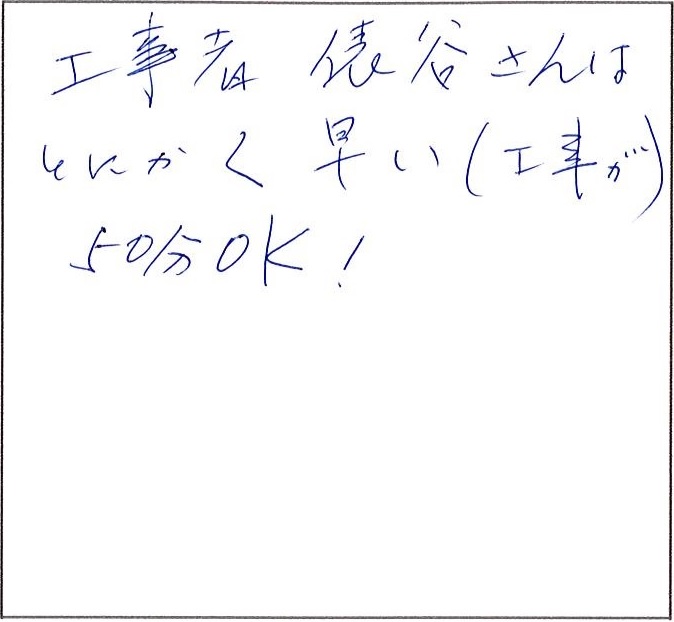 工事者 俵谷さんは
とにかく早い(工事が)
50分OK!